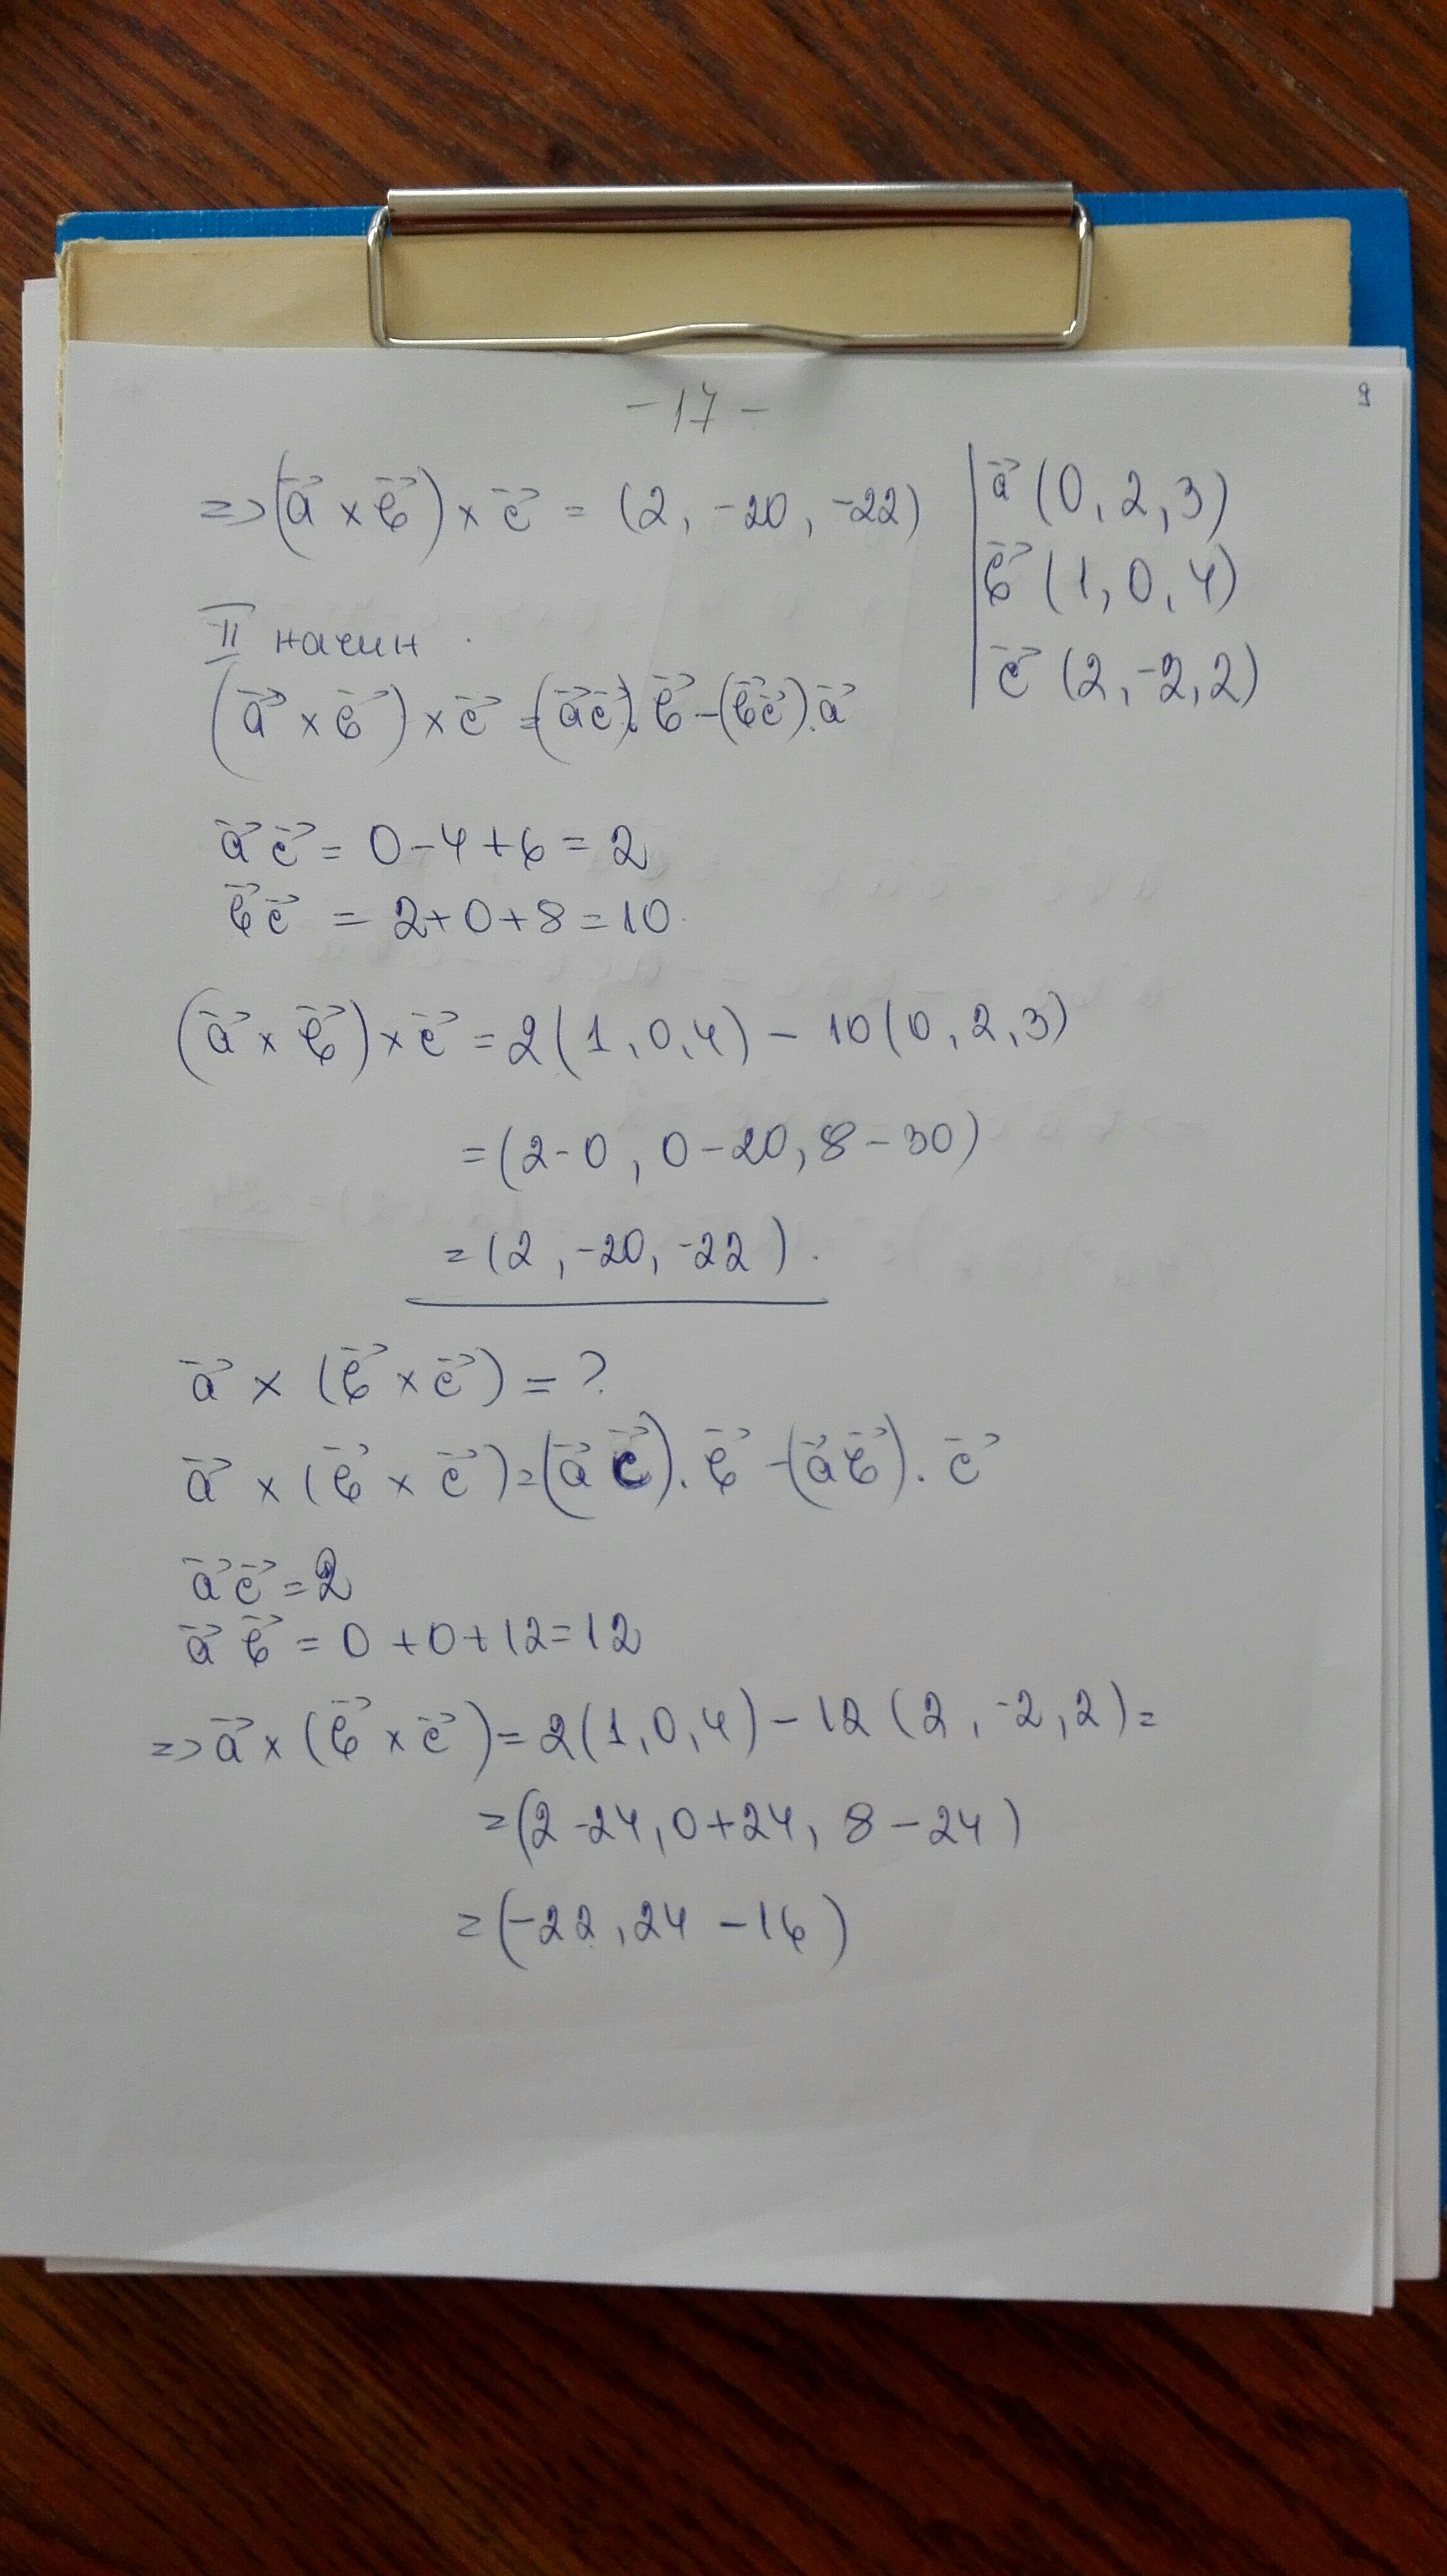 - 17 -
9
=> (a⃗ × b⃗) × c⃗ = (2, -20, -22)
a⃗ (0, 2, 3)
b⃗ (1, 0, 4)
c⃗ (2, -2, 2)
II начин
(a⃗ × b⃗) × c⃗ = (a⃗ c⃗). b⃗ - (b⃗ c⃗). a⃗
a⃗ c⃗ = 0 - 4 + 6 = 2
b⃗ c⃗ = 2 + 0 + 8 = 10
(a⃗ × b⃗) × c⃗ = 2(1, 0, 4) - 10(0, 2, 3)
= (2 - 0, 0 - 20, 8 - 30)
= (2, -20, -22).
a⃗ × (b⃗ × c⃗) = ?
a⃗ × (b⃗ × c⃗) = (a⃗ c⃗). b⃗ - (a⃗ b⃗). c⃗
a⃗ c⃗ = 2
a⃗ b⃗ = 0 + 0 + 12 = 12
=> a⃗ × (b⃗ × c⃗) = 2(1, 0, 4) - 12 (2, -2, 2) =
= (2 - 24, 0 + 24, 8 - 24)
= (-22, 24 - 16)